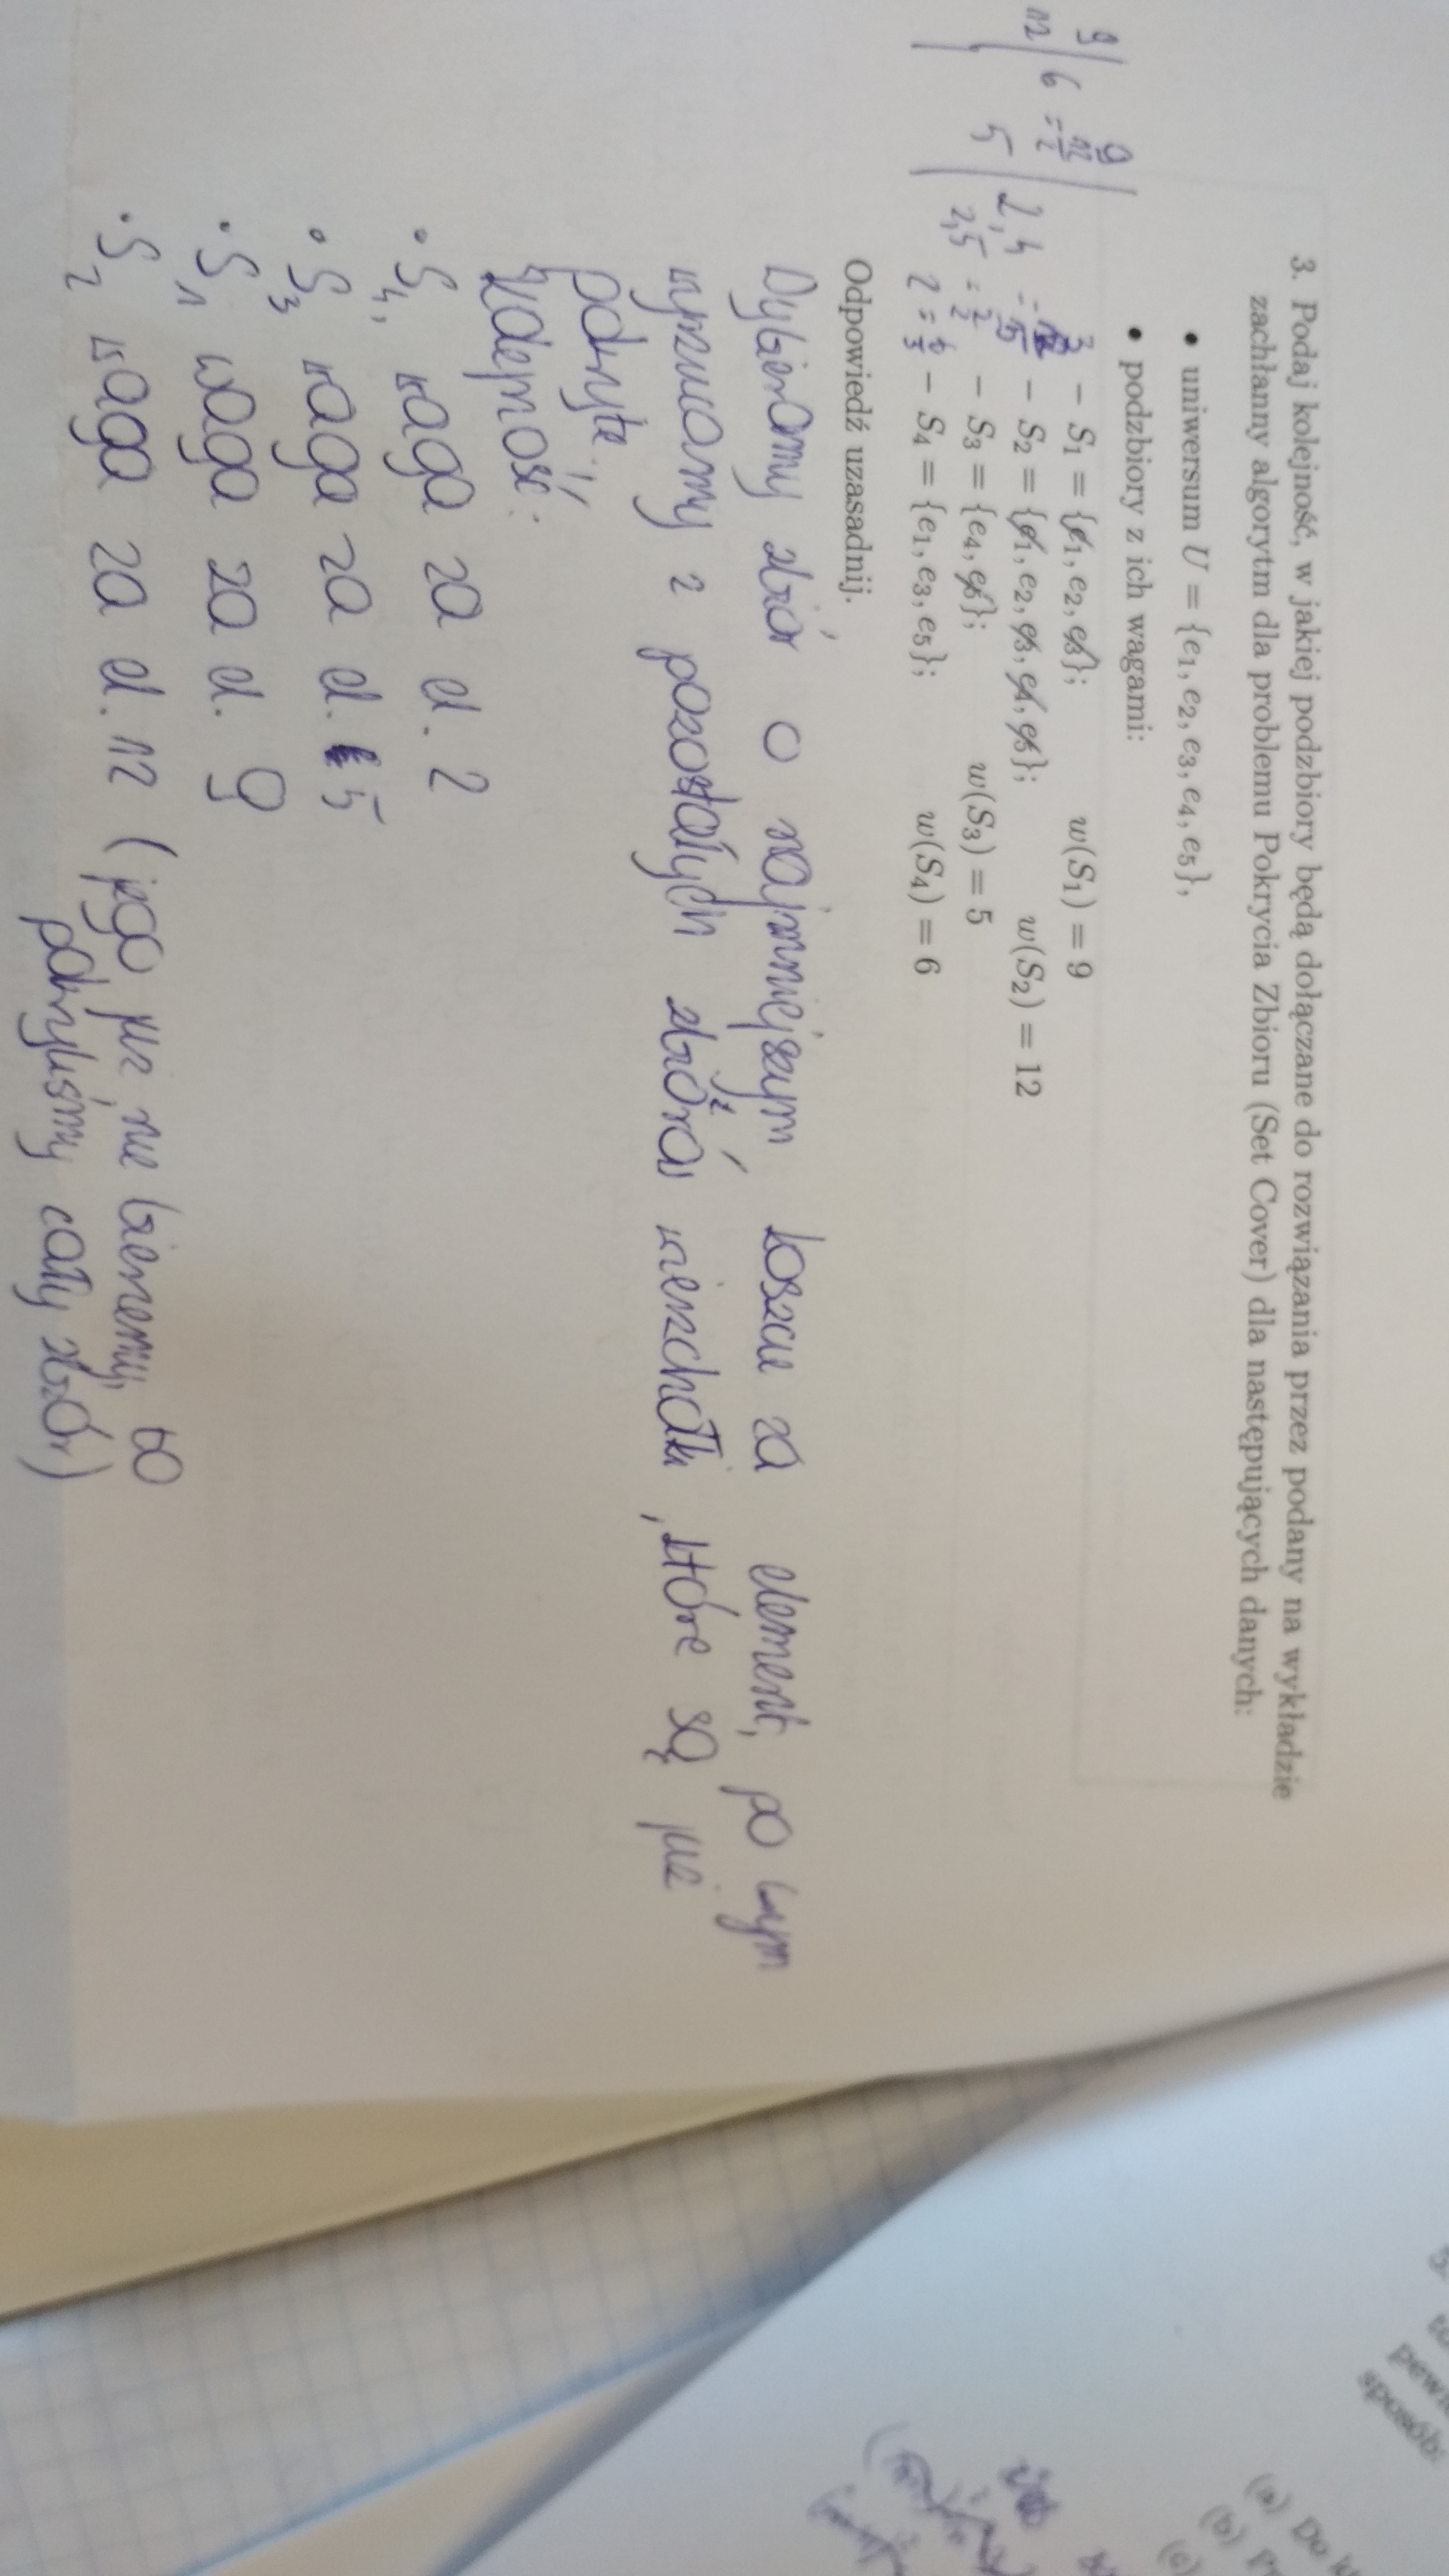 3. Podaj kolejność, w jakiej podzbiory będą dołączane do rozwiązania przez podany na wykładzie
zachłanny algorytm dla problemu Pokrycia Zbioru (Set Cover) dla następujących danych:
• uniwersum U = {e₁, e₂, e₃, e₄, e₅},
• podzbiory z ich wagami:
3 – S₁ = {e₁, e₂, e₃}; w(S₁) = 9
– S₂ = {e₁, e₂, e₃, e₄, e₅}; w(S₂) = 12
– S₃ = {e₄, e₅}; w(S₃) = 5
2 = 6/3 – S₄ = {e₁, e₃, e₅}; w(S₄) = 6
9
12
6 = 12/2
5
2,4
2,5
Odpowiedź uzasadnij.
Wybieramy zbiór o najmniejszym koszcie za element, po czym
wyrzucamy z pozostałych zbiorów wierzchołki, które są już
pokryte.
Kolejność:
• S₄, waga za el. 2
• S₃ waga za el. 5
• S₁ waga za el. 9
• S₂ waga za el. 12 (jego już nie bierzemy, bo
pokryliśmy cały zbiór)
5.
pewi
sposób:
(a) Do
(b)
(c)